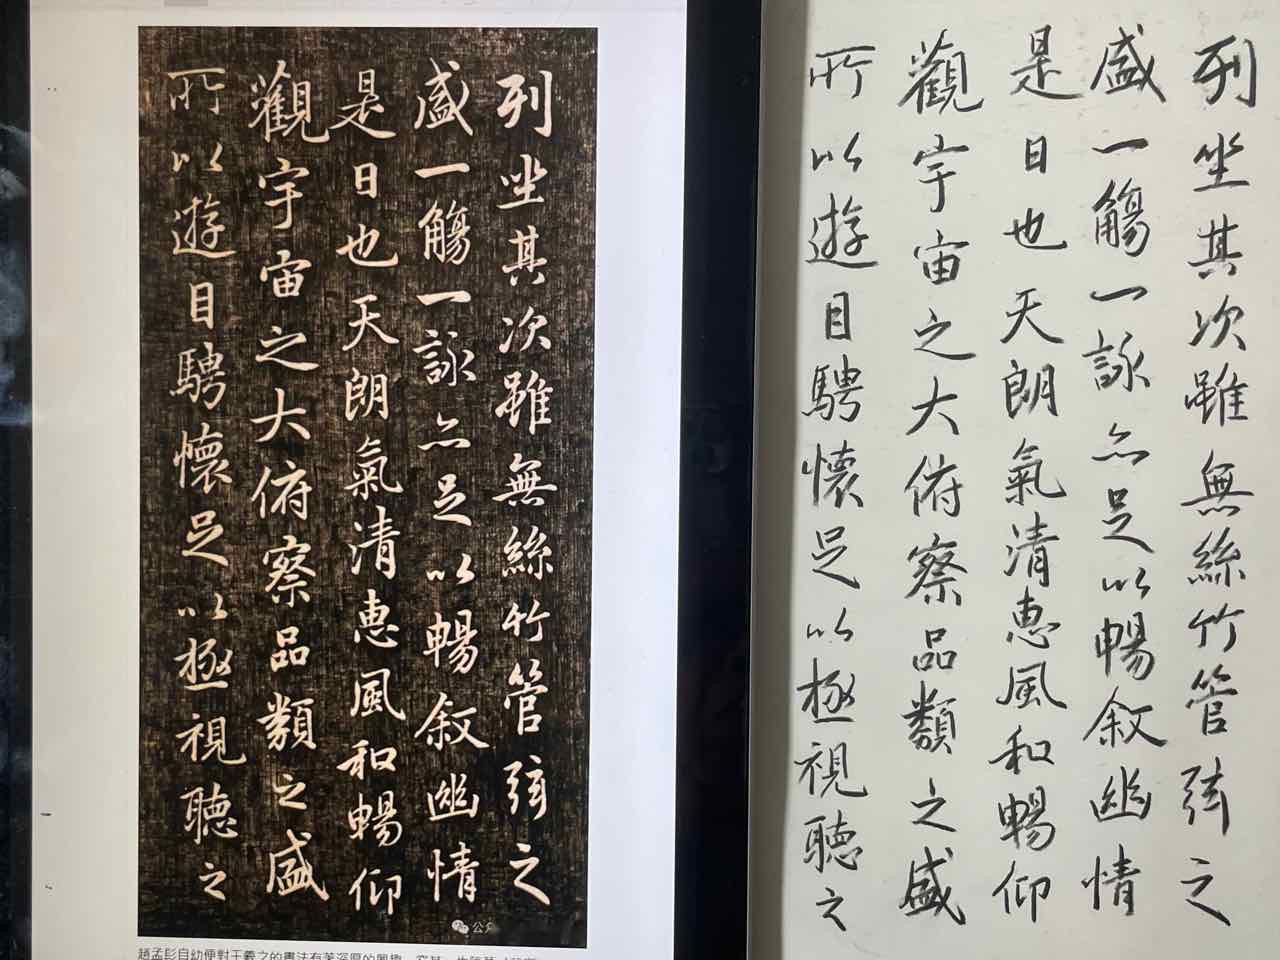 列坐其次雖無絲竹管弦之
盛一觴一詠亦足以暢叙幽情
是日也天朗氣清惠風和暢仰
觀宇宙之大俯察品類之盛
所以遊目騁懷足以極視聽之
公
趙孟頫自幼便對王羲之的書法有著深厚的興趣
列坐其次雖無絲竹管弦之
盛一觴一詠亦足以暢叙幽情
是日也天朗氣清惠風和暢仰
觀宇宙之大俯察品類之盛
所以遊目騁懷足以極視聽之